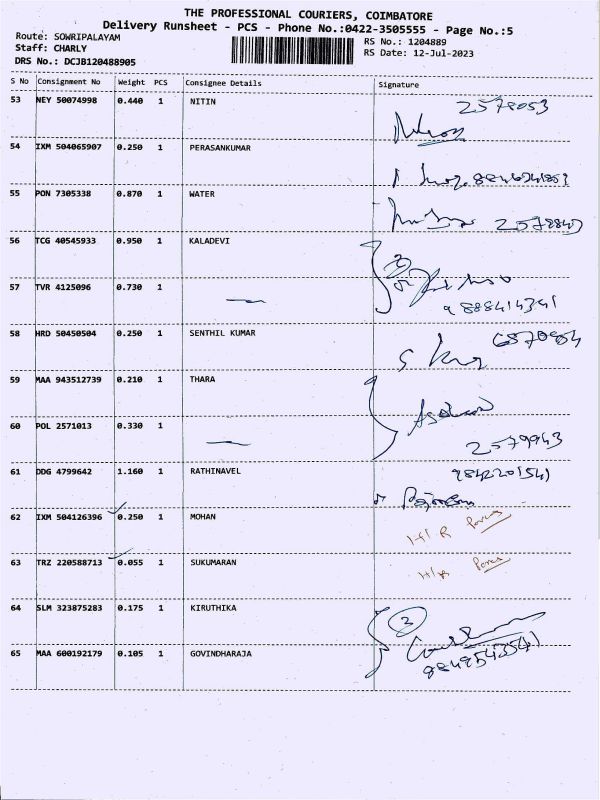 THE PROFESSIONAL COURIERS, COIMBATORE
Delivery Runsheet - PCS - Phone No.:0422-3505555 - Page No.:5
Route: SOWRIPALAYAM
RS No.: 1204889
Staff: CHARLY
RS Date: 12-Jul-2023
DRS No.: DCJB120488905
S No Consignment No Weight PCS Consignee Details Signature
53 NEY 50074998 0.440 1 NITIN 2578053
54 IXM 504065907 0.250 1 PERASANKUMAR
55 PON 7305338 0.870 1 WATER
56 TCG 40545933 0.950 1 KALADEVI 2
57 TVR 4125096 0.730 1
58 HRD 50450504 0.250 1 SENTHIL KUMAR
59 MAA 943512739 0.210 1 THARA
60 POL 2571013 0.330 1 2579943
61 DDG 4799642 1.160 1 RATHINAVEL 9842201541
62 IXM 504126396 0.250 1 MOHAN
63 TRZ 220588713 0.055 1 SUKUMARAN
64 SLM 323875283 0.175 1 KIRUTHIKA 3
65 MAA 600192179 0.105 1 GOVINDHARAJA